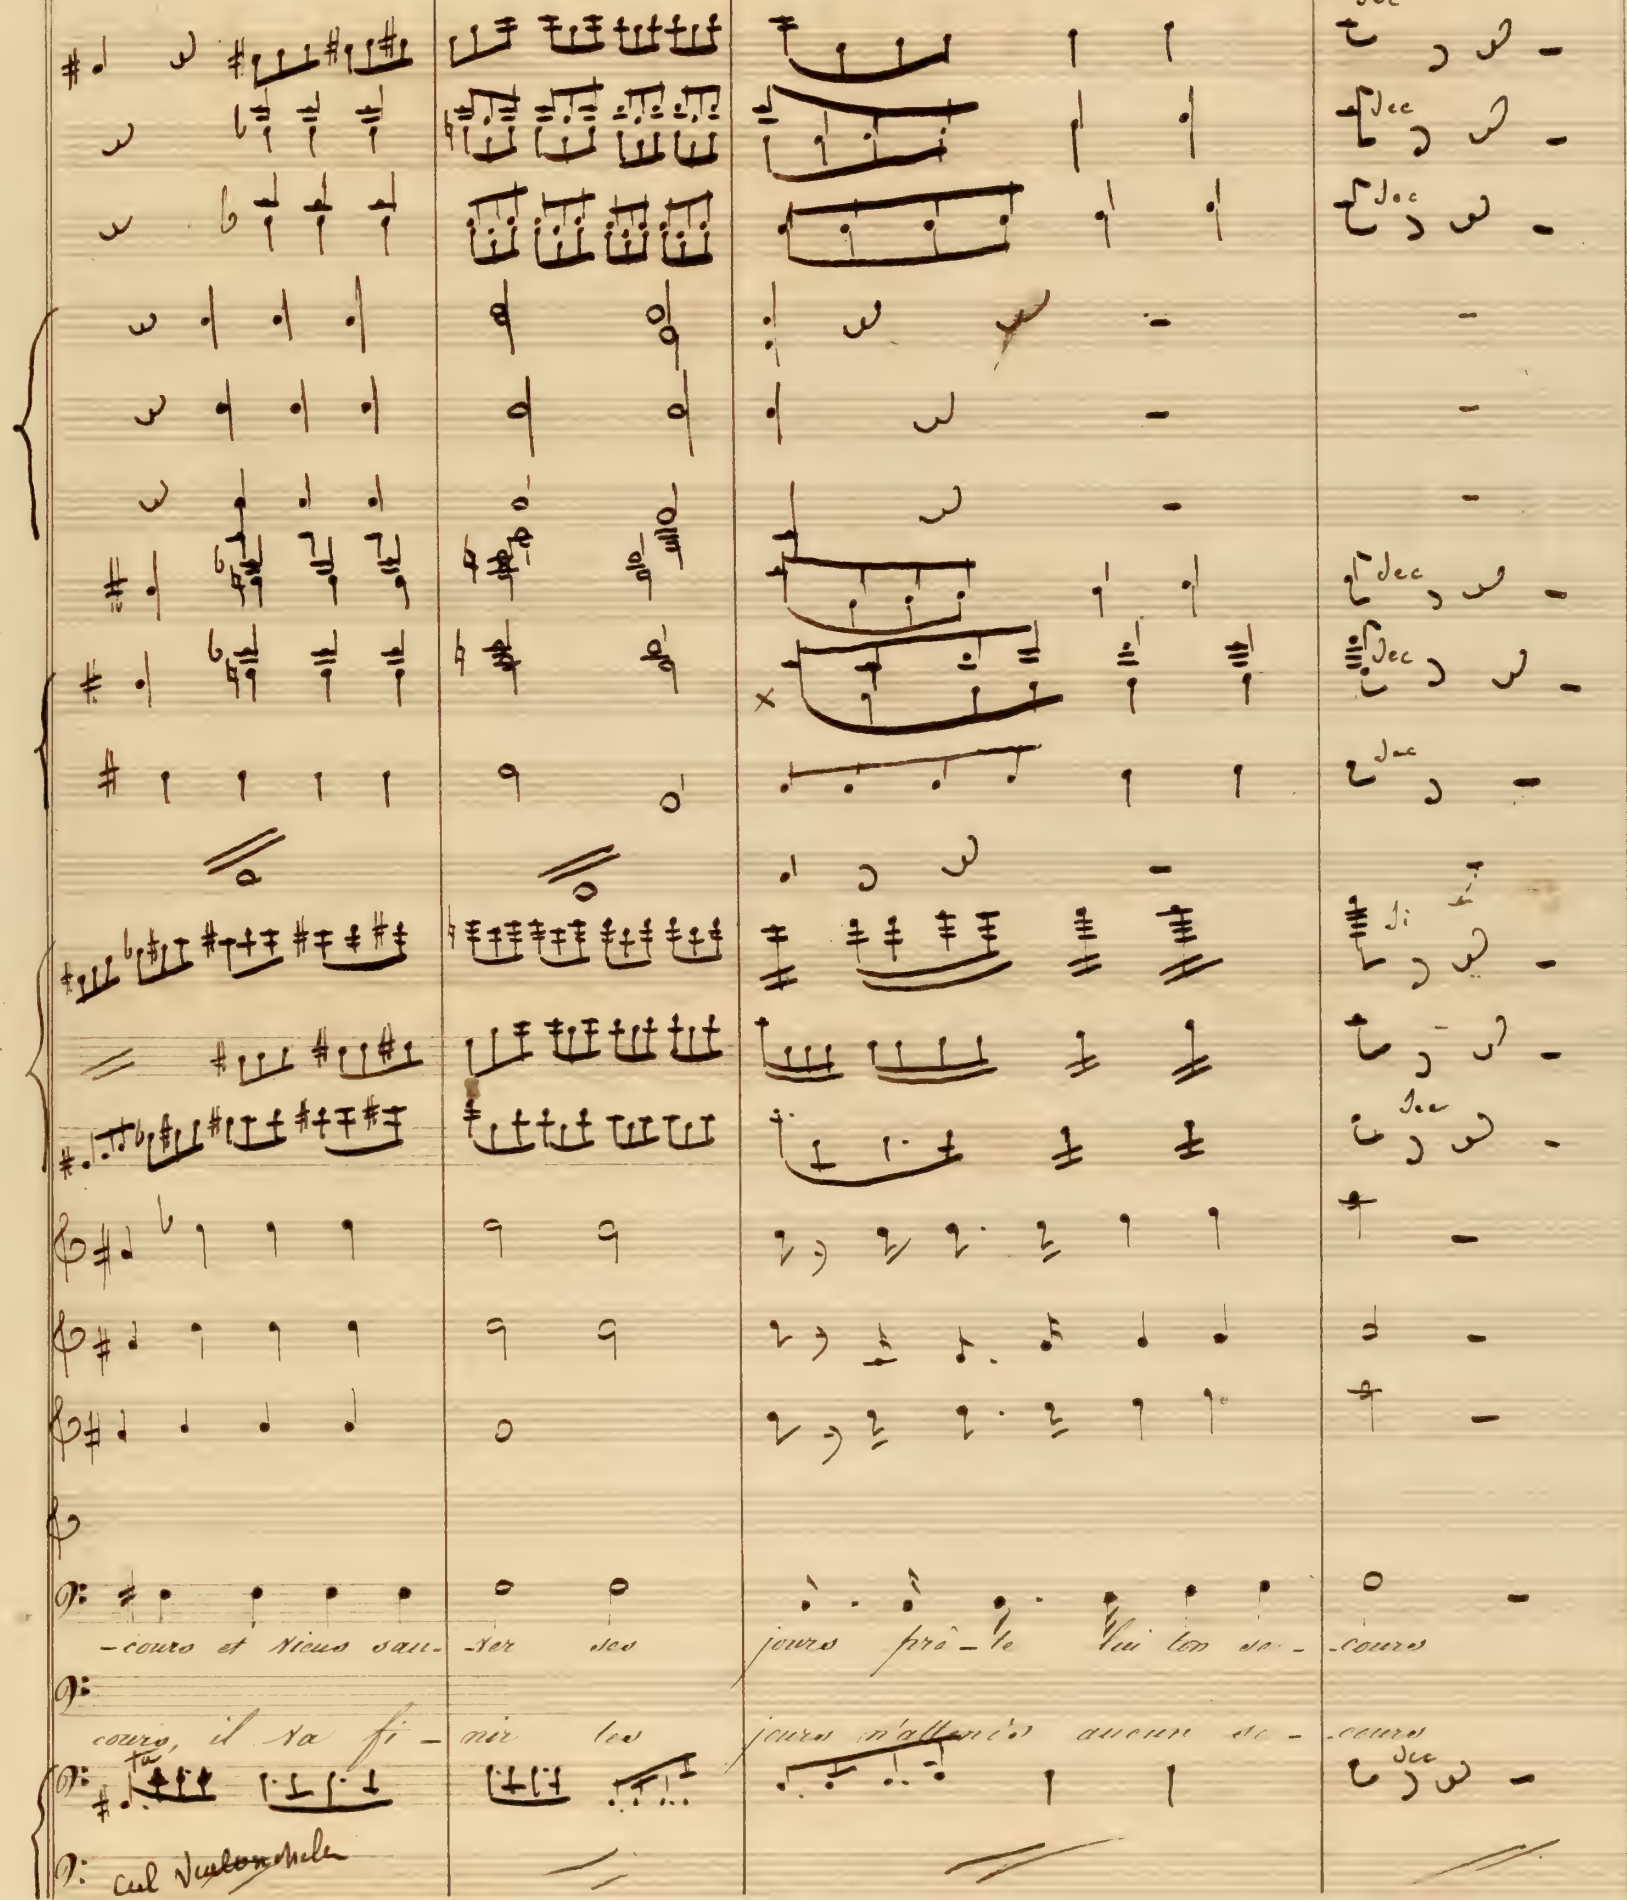 sec
sec
sec
sec
sec
sec
sec
-cours et viens sau- -ver ses jours prê-te lui ton se- -cours
cours, il va fi- nir tes jours n'attends aucun se- -cours
sec
col Violonchele